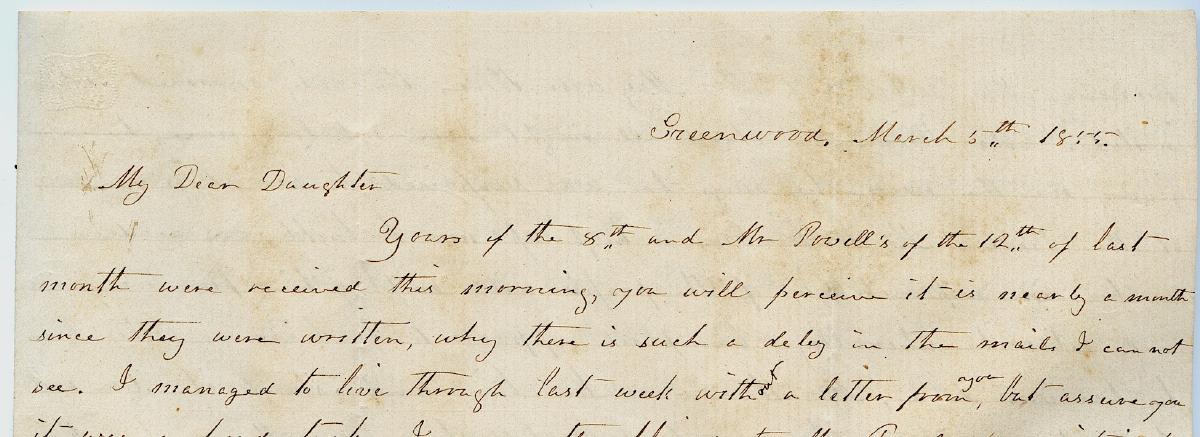 Greenwood, March 5th 1855.
My Dear Daughter
Yours of the 8th and Mr Powell's of the 12th of last
month were received this morning, you will perceive it is nearly a month
since they were written, why there is such a delay in the mails I can not
see. I managed to live through last week without a letter from you, but assure you
it was a hard task. I